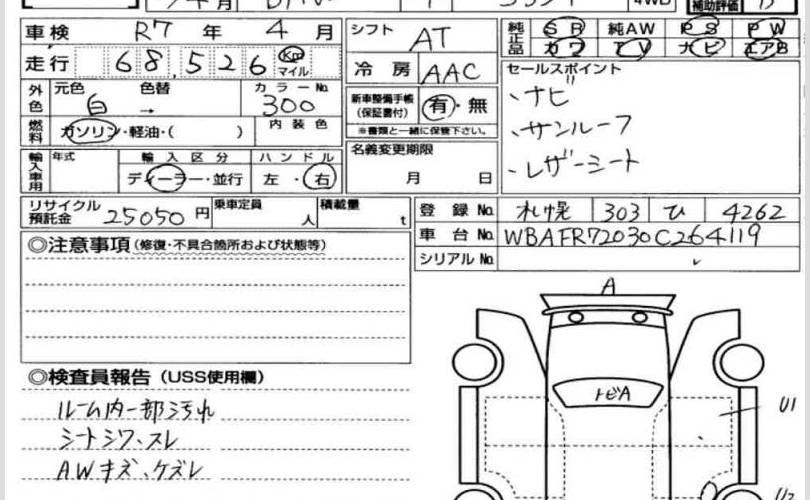 4WD
補助評価
車検 R7 年 4 月
シフト AT
純正品 SR 純AW PS PW
カワ TV ナビ エアB
走行 68,526 Km マイル
冷房 AAC
セールスポイント
、ナビ
、サンルーフ
、レザーシート
外色 元色 色替 カラーNo.
白 → 300
新車整備手帳(保証書付) 有・無
※書類と一緒に保管下さい。
燃料 ガソリン・軽油・( ) 内装色
名義変更期限
月 日
輸入車用 年式 輸入区分 ハンドル
ディーラー・並行 左・右
リサイクル預託金 25050 円 乗車定員 人 積載量 t
登録No. 札幌 303 ひ 4262
車台No. WBAFR72030C264119
シリアルNo.
◎注意事項(修復・不具合箇所および状態等)
A
トビA
U1
◎検査員報告(USS使用欄)
ルーム内一部汚れ
シートシワ、スレ
AWキズ、ケズレ